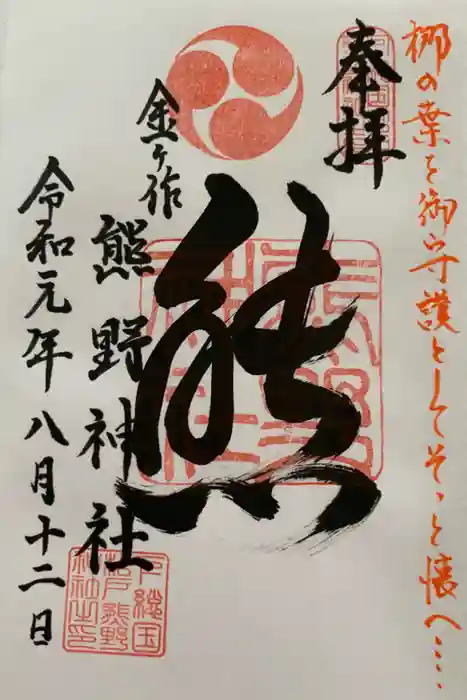 梛の葉を御守護としてそっと懐へ‥‥
奉拝
熊
金ヶ作
熊野神社
令和元年八月十二日
下総国
松戸熊野
神社之印